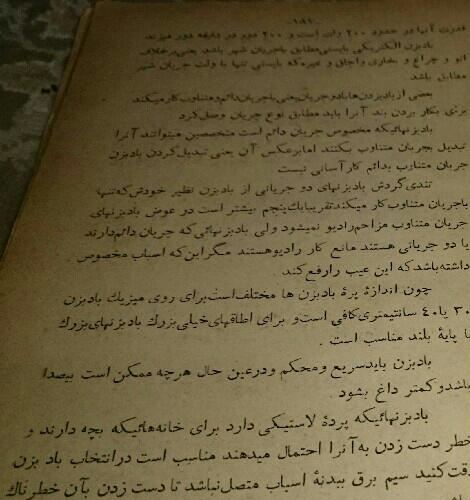 -۱۸۱-
قدرت آنها در حدود ۲۰۰ وات است و ۲۰۰ دور در دقیقه دور میزند
بادبزن الکتریکی بایستی مطابق باجریان شهر باشد یعنی برخلاف
اتو و چراغ و بخاری واجاق و غیره که بایستی تنها با ولت جریان شهر
مطابق باشد
بعضی از بادبزن ها بادو جریان یعنی باجریان دائم و متناوب کار میکند
برای بکار بردن بند آنرا باید مطابق نوع جریان وصل کرد
بادبزنهائیکه مخصوص جریان دائم است متخصصین میتوانند آنرا
تبدیل بجریان متناوب بکنند اما برعکس آن یعنی تبدیل کردن بادبزن
جریان متناوب بدائم کار آسانی نیست
تندی گردش بادبزنهای دو جریانی از بادبزن نظیر خودش که تنها
باجریان متناوب کار میکند تقریبا یك پنجم بیشتر است در عوض بادبزنهای
جریان متناوب مزاحم رادیو نمیشود ولی بادبزنهائی که جریان دائم دارند
یا دو جریانی هستند مانع کار رادیو هستند مگر این که اسباب مخصوص
داشته باشد که این عیب را رفع کند.
چون اندازهٔ پرهٔ بادبزن ها مختلف است برای روی میز یك بادبزن
۳۰ یا ۴۰ سانتیمتری کافی است و برای اطاقهای خیلی بزرك بادبزنهای بزرك
با پایهٔ بلند مناسب است .
بادبزن باید سریع و محکم و درعین حال هرچه ممکن است بیصدا
باشد و کمتر داغ بشود
بادبزنهائیکه پردهٔ لاستیکی دارد برای خانه هائیکه بچه دارند و
خطر دست زدن به آنرا احتمال میدهند مناسب است درانتخاب باد بزن
دقت کنید سیم برق ببدنهٔ اسباب متصل نباشد تا دست زدن بآن خطرناك